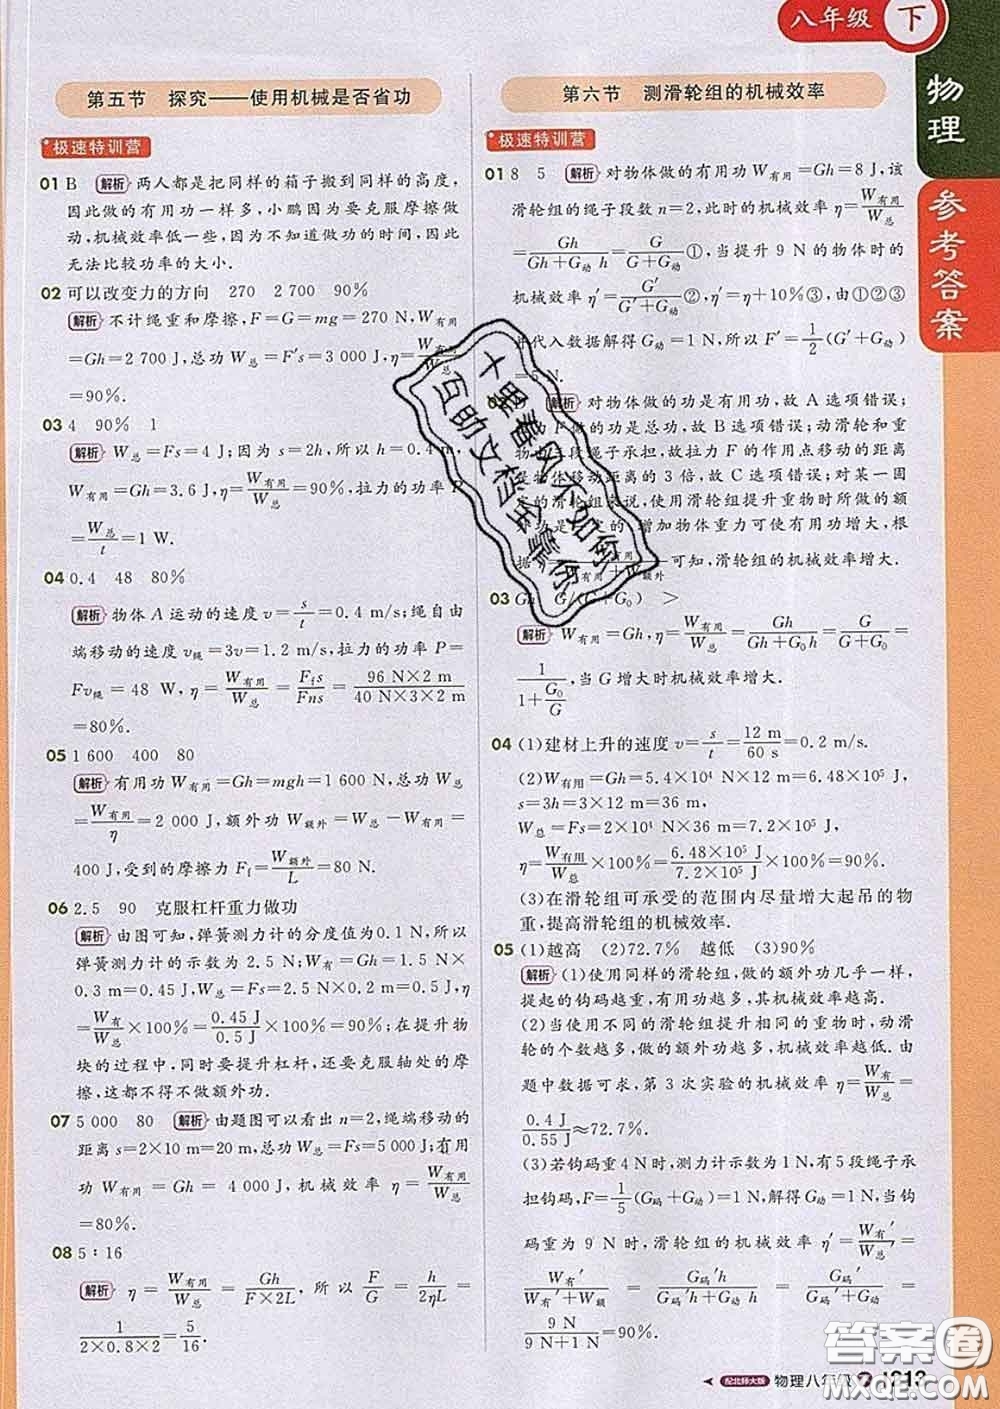 八年级 下
物理
参考答案
第五节 探究——使用机械是否省功
极速特训营
01 B 解析 两人都是把同样的箱子搬到同样的高度,
因此做的有用功一样多,小鹏因为要克服摩擦做
功,机械效率低一些,因为不知道做功的时间,因此
无法比较功率的大小.
02 可以改变力的方向 270 2 700 90%
解析 不计绳重和摩擦,F=G=mg=270 N,W有用
=Gh=2 700 J,总功W总=F's=3 000 J,η=W有用/W总
=90%.
03 4 90% 1
解析 W总=Fs=4 J;因为s=2h,所以h=0.4 m,
W有用=Gh=3.6 J,η=W有用/W总=90%,拉力的功率P
=W总/t=1 W.
04 0.4 48 80%
解析 物体A运动的速度v=s/t=0.4 m/s;绳自由
端移动的速度v绳=3v=1.2 m/s,拉力的功率P=
Fv绳=48 W,η=W有用/W总=Ffs/Fns=96 N×2 m/40 N×3×2 m
=80%.
05 1 600 400 80
解析 有用功W有用=Gh=mgh=1 600 N,总功W总
=W有用/η=2 000 J,额外功W额外=W总-W有用=
400 J,受到的摩擦力Ff=W额外/L=80 N.
06 2.5 90 克服杠杆重力做功
解析 由图可知,弹簧测力计的分度值为0.1 N,
弹簧测力计的示数为2.5 N;W有=Gh=1.5 N×
0.3 m=0.45 J,W总=Fs=2.5 N×0.2 m=0.5 J,
η=W有/W总×100%=0.45 J/0.5 J×100%=90%;在提升物
块的过程中,同时要提升杠杆,还要克服轴处的摩
擦,这都不得不做额外功.
07 5 000 80 解析 由题图可以看出n=2,绳端移动的
距离s=2×10 m=20 m,总功W总=Fs=5 000 J;有用
功W有用=Gh=4 000 J,机械效率η=W有用/W总
=80%.
08 5∶16
解析 η=W有用/W总=Gh/F×2L,所以F/G=h/2ηL=
1/2×0.8×2=5/16.
第六节 测滑轮组的机械效率
极速特训营
01 8 5 解析 对物体做的有用功W有用=Gh=8 J,该
滑轮组的绳子段数n=2,此时的机械效率η=W有用/W总
=Gh/Gh+G动h=G/G+G动①,当提升9 N的物体时的
机械效率η'=G'/G'+G动②,η'=η+10%③,由①②③
代入数据解得G动=1 N,所以F'=1/2(G'+G动)
=5 N.
解析 对物体做的功是有用功,故A选项错误;
F做的功是总功,故B选项错误;动滑轮和重
段绳子承担,故拉力F的作用点移动的距离
物体移动距离的3倍,故C选项错误;对某一固
的滑轮组来说,使用滑轮组提升重物时所做的额
增加物体重力可使有用功增大,根
可知,滑轮组的机械效率增大.
03 Gh G/(G+G0) >
解析 W有用=Gh,η=W有用/W总=Gh/Gh+G0h=G/G+G0=
1/1+G0/G,当G增大时机械效率增大.
04 (1)建材上升的速度v=s/t=12 m/60 s=0.2 m/s.
(2)W有用=Gh=5.4×10⁴ N×12 m=6.48×10⁵ J,
s=3h=3×12 m=36 m,
W总=Fs=2×10⁴ N×36 m=7.2×10⁵ J,
η=W有用/W总×100%=6.48×10⁵ J/7.2×10⁵ J×100%=90%.
(3)在滑轮组可承受的范围内尽量增大起吊的物
重,提高滑轮组的机械效率.
05 (1)越高 (2)72.7% 越低 (3)90%
解析 (1)使用同样的滑轮组,做的额外功几乎一样,
提起的钩码越重,有用功越多,其机械效率越高.
(2)当使用不同的滑轮组提升相同的重物时,动滑
轮的个数越多,做的额外功越多,机械效率越低.由
题中数据可求,第3次实验的机械效率η=W有/W总=
0.4 J/0.55 J≈72.7%.
(3)若钩码重4 N时,测力计示数为1 N,有5段绳子承
担钩码,F=1/5(G码+G动)=1 N,解得G动=1 N,当钩
码重为9 N时,滑轮组的机械效率η'=W有'/W总'=
W有'/W有'+W额=G码'h/G码'h+G动h=G码'/G码'+G动=
9 N/9 N+1 N=90%.
十里春风不如何
互助文档全靠你
配北师大版 物理八年级 下 1213
答案圈
MXQE.COM